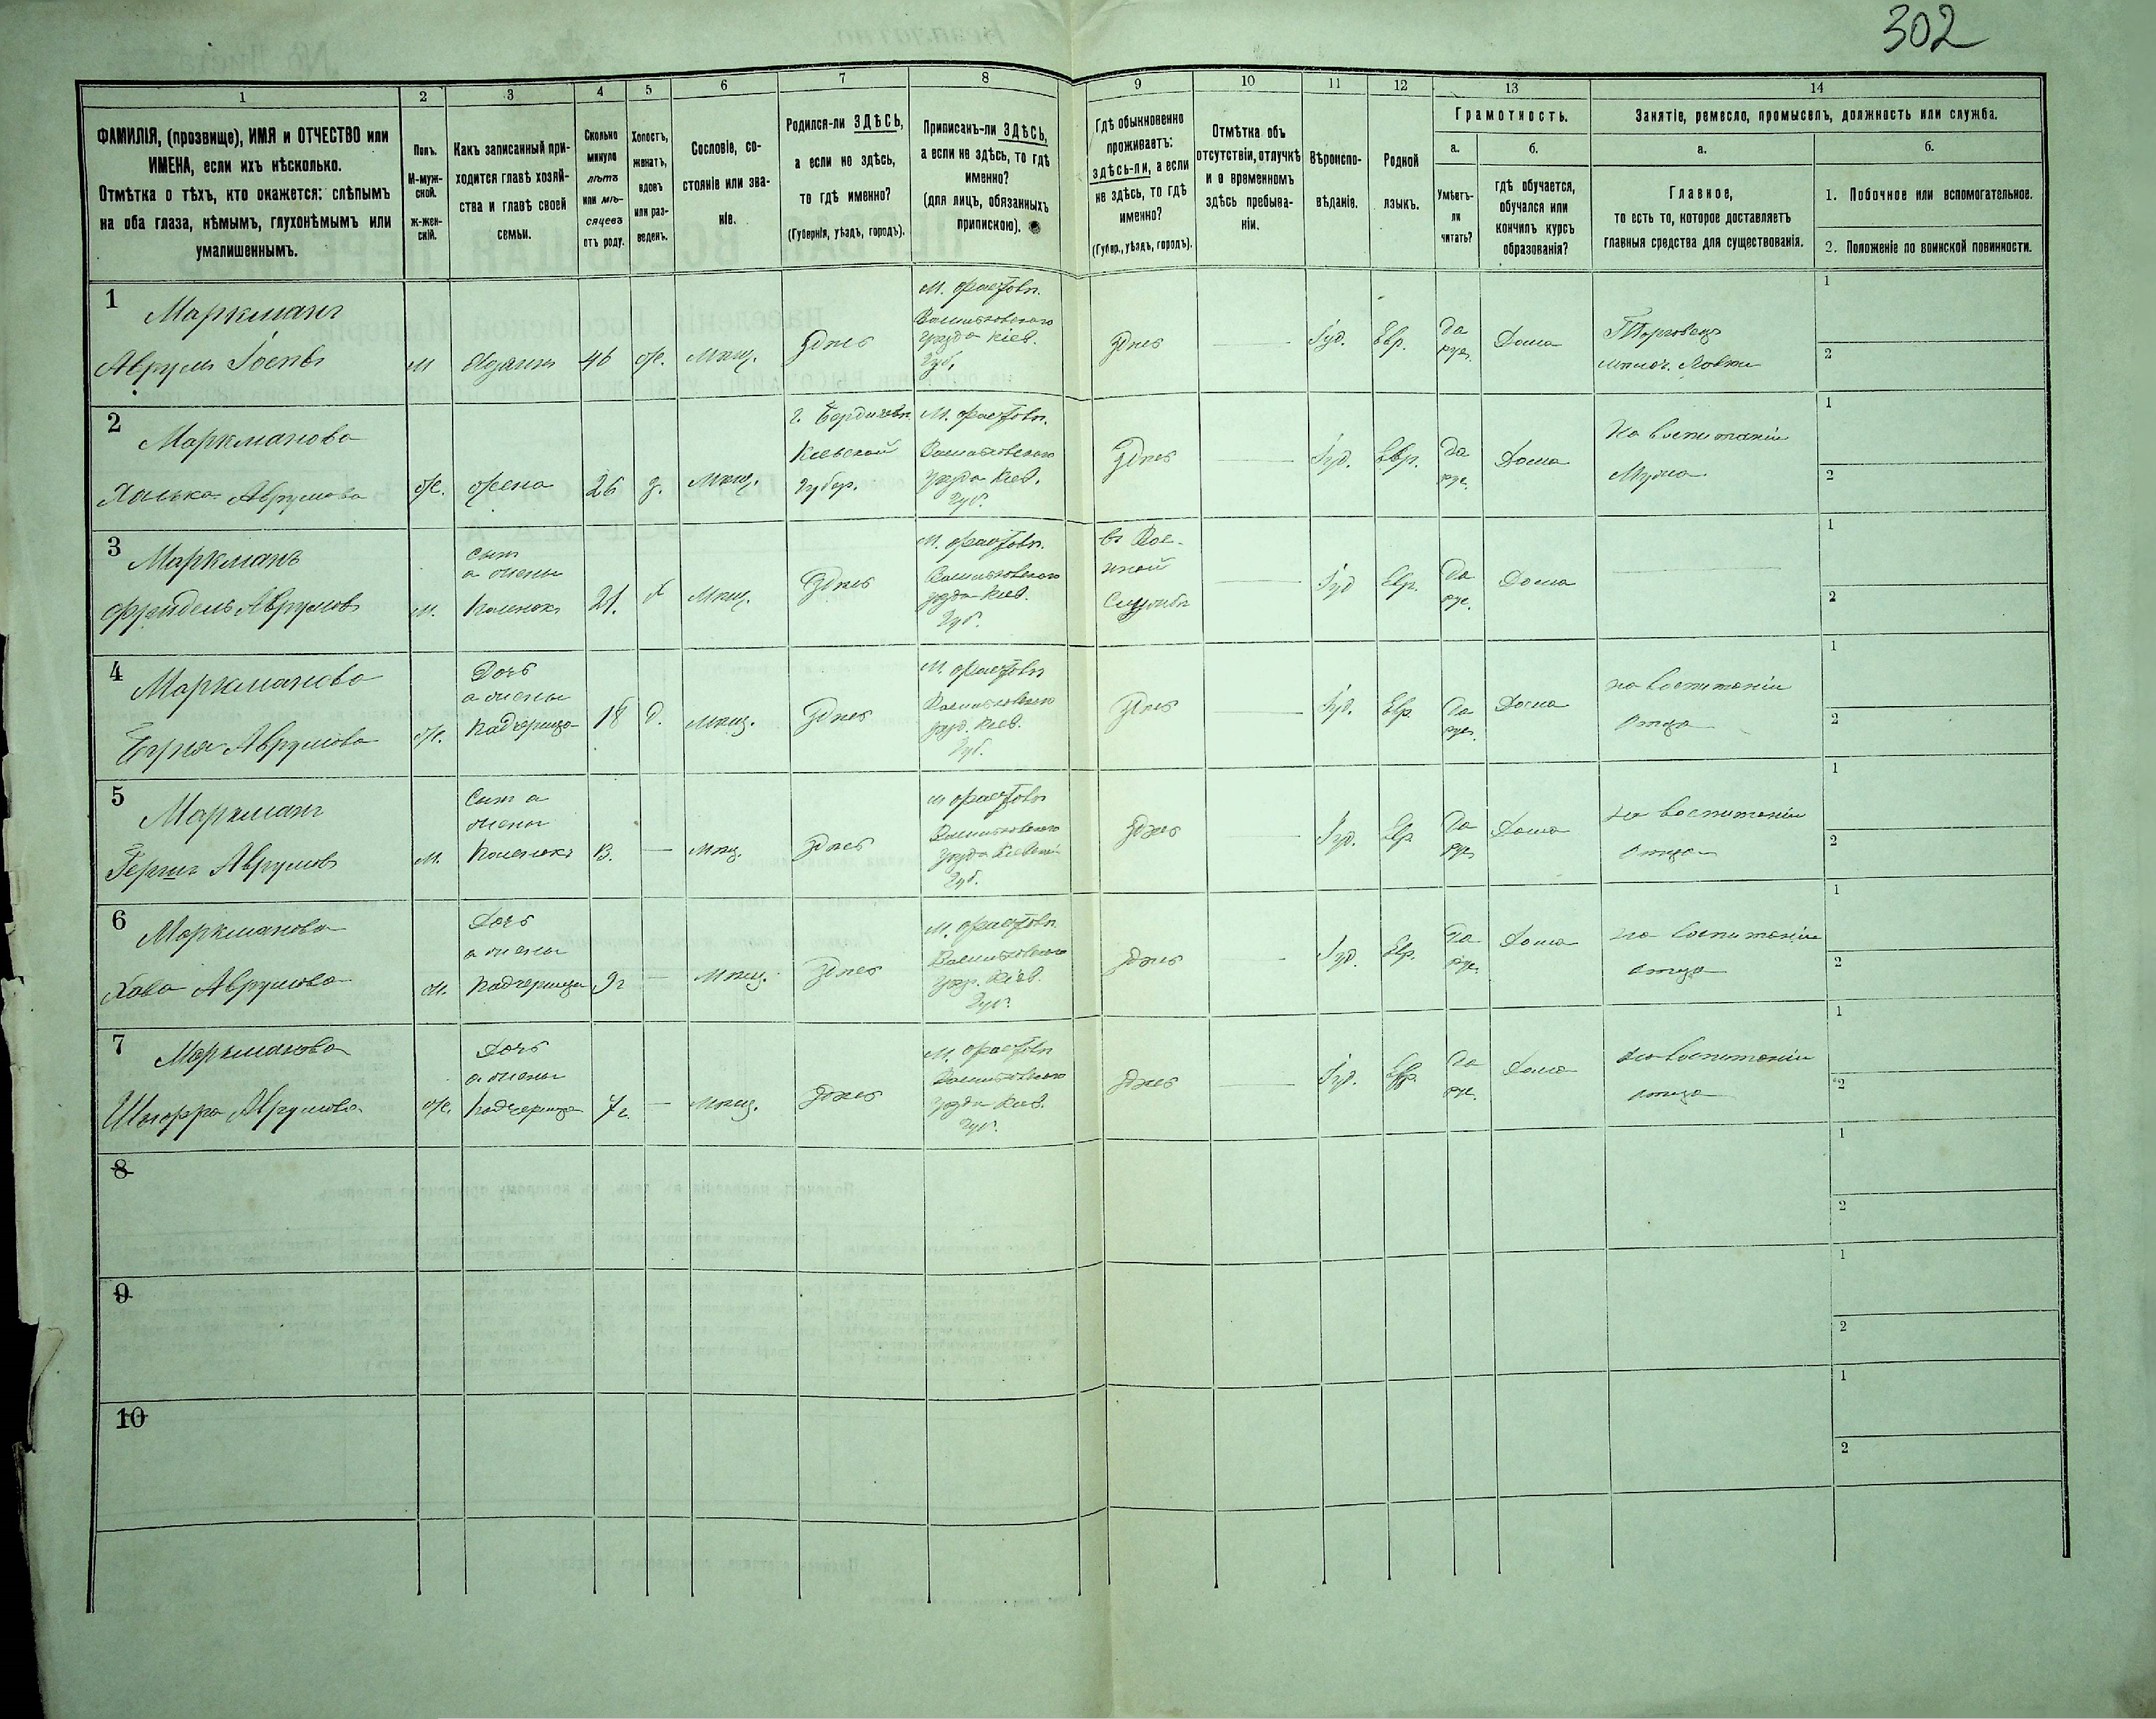 302
1 2 3 4 5 6 7 8 9 10 11 12 13 14
ФАМИЛІЯ, (прозвище), ИМЯ и ОТЧЕСТВО или
ИМЕНА, если ихъ нѣсколько.
Отмѣтка о тѣхъ, кто окажется: слѣпымъ
на оба глаза, нѣмымъ, глухонѣмымъ или
умалишеннымъ.
Полъ.
М-муж-
ской.
ж-жен-
скій.
Какъ записанный при-
ходится главѣ хозяй-
ства и главѣ своей
семьи.
Сколько
минуло
лѣтъ
или мѣ-
сяцевъ
отъ роду.
Холостъ,
женатъ,
вдовъ
или раз-
веденъ.
Сословіе, со-
стояніе или зва-
ніе.
Родился-ли ЗДѢСЬ,
а если не здѣсь,
то гдѣ именно?
(Губернія, уѣздъ, городъ).
Приписанъ-ли ЗДѢСЬ,
а если не здѣсь, то гдѣ
именно?
(для лицъ, обязанныхъ
припискою).
Гдѣ обыкновенно
проживаетъ:
здѣсь-ли, а если
не здѣсь, то гдѣ
именно?
(Губер., уѣздъ, городъ).
Отмѣтка объ
отсутствіи, отлучкѣ
и о временномъ
здѣсь пребыва-
ніи.
Вѣроиспо-
вѣданіе.
Родной
языкъ.
Грамотность.
а.
Умѣетъ-
ли
читать?
б.
гдѣ обучается,
обучался или
кончилъ курсъ
образованія?
Занятіе, ремесло, промыселъ, должность или служба.
а.
Главное,
то есть то, которое доставляетъ
главныя средства для существованія.
б.
1. Побочное или вспомогательное.
2. Положеніе по воинской повинности.
1
Маркманъ
Аврумъ Іосевъ
м
Хозяинъ
46
ж.
Мѣщ.
Здѣсь
М. Фастовъ.
Васильковскаго
уѣзда Кіев.
Губ.
Здѣсь
Іуд.
Евр.
да
рус.
Дома
Торговецъ
1
2
2
Маркманова
Хайка Аврумова
ж.
жена
26
з.
Мѣщ.
г. Бердичевъ
Кіевской
губер.
М. Фастовъ.
Васильковскаго
уѣзда Кіев.
Губ.
Здѣсь
Іуд.
Евр.
да
рус.
Дома
На воспитаніи
Мужа
1
2
3
Маркманъ
Аврумовъ
м.
Сынъ
а жены
Пасынокъ
21.
х
Мѣщ.
Здѣсь
М. Фастовъ.
Васильковскаго
уѣзда Кіев.
Губ.
въ Вое-
нной
Службѣ
Іуд
Евр.
Да
рус.
Дома
1
2
4
Маркманова
Буня Аврумова
ж.
Дочь
а жены
Падчерица
18
д.
Мѣщ.
Здѣсь
М. Фастовъ
Васильковскаго
уѣзд. Кіев.
Губ.
Здѣсь
Іуд.
Евр.
Да
рус.
Дома
на воспитаніи
отца
1
2
5
Маркманъ
Гершъ Аврумовъ
м.
Сынъ а
жены
Пасынокъ
13.
Мѣщ.
Здѣсь
М Фастовъ
Васильковскаго
уѣзда Кіевской
Губ.
Здѣсь
Іуд.
Евр
Да
рус
Дома
на воспитаніи
отца
1
2
6
Маркманова
Хава Аврумова
ж.
Дочь
а жены
Падчерица
9 г
Мѣщ.
Здѣсь
М. Фастовъ.
Васильковскаго
уѣзд. Кіев.
Губ.
Здѣсь
Іуд.
Евр.
Да
рус.
Дома
на воспитаніи
отца
1
2
7
Маркманова
Аврумова
ж.
Дочь
а жены
Падчерица
7 г.
Мѣщ.
Здѣсь
М. Фастовъ
Васильковскаго
уѣзда Кіев.
Губ.
Здѣсь
Іуд.
Евр.
Да
рус.
Дома
на воспитаніи
отца
1
2
8
1
2
9
1
2
10
1
2